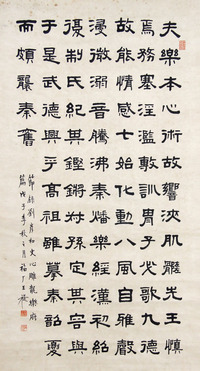 夫樂本心術故響浹肌髓先王慎
焉務塞淫濫敷訓胄子必歌九德
故能情感七始化動八風自雅聲
浸微溺音騰沸秦燔樂經漢初紹
復制氏紀其鏗鏘叔孫定其容與
于是武德興乎高祖雖摹秦韶夏
而頗襲秦舊
節錄劉彥和文心雕龍樂府
篇戊子季秋之月